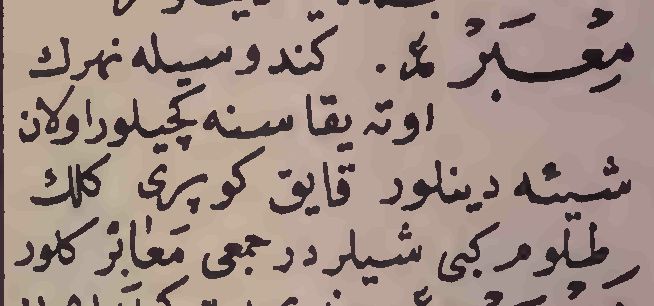 مِعْبَرْ ع . كندوسیله نهرك
اوته یقاسنه كچیلور اولان
شیئه دینلور قایق كوپری كلك
طلوم كبی شیلردر جمعی مَعَابِرْ كلور